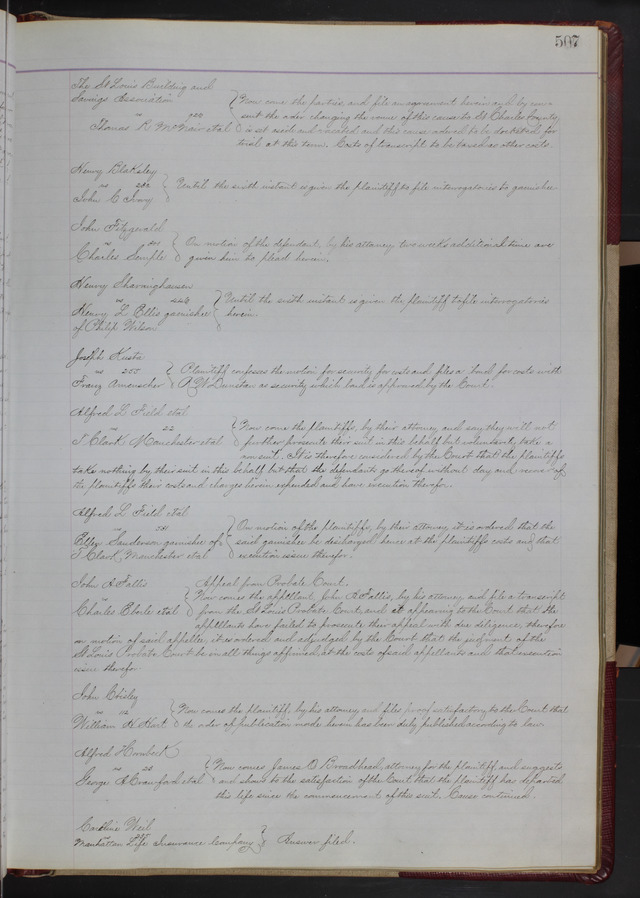 507
The St Louis Building and
Savings Association
vs
Thomas R McNair etal
Now come the parties, and file an agreement herein and by con-
sent the order changing the venue of this cause to St Charles County,
is set aside and vacated and this cause ordered to be docketed for
trial at this term. Costs of transcript to be taxed as other costs.
Henry Blaksley
vs
John C Ivory
Until the sixth instant is given the plaintiff to file interrogatories to garnishee
John Fitzgerald
vs
Charles Semple
On motion of the defendant, by his attorney two weeks additional time are
given him to plead herein.
Henry Shawinghausen
vs
Henry L Ellis garnishee
of Philip Wilson
Until the sixth instant is given the plaintiff to file interrogatories
herein.
Joseph Kusta
vs 255
Franz Amenscher
Plaintiff confesses the motion for security for costs and files a bond for costs with
R W Dunstan as security which bond is approved by the Court.
Alfred L Field etal
vs 22
T Clark Manchester etal
Now come the plaintiffs, by their attorney and say they will not
further prosecute their suit in this behalf but voluntarily take a
nonsuit. It is therefore considered by the Court that the plaintiffs
take nothing by their suit in this behalf but that the defendants go thereof without day and recover of
the plaintiffs their costs and charges herein expended and have execution therefor.
Alfred L Field etal
vs
Ellen Sanderson garnishee of
T Clark Manchester etal
On motion of the plaintiffs, by their attorney it is ordered that the
said garnishee be discharged hence at the plaintiffs costs and that
execution issue therefor.
John A Fallis
vs
Charles Eberle etal
Appeal from Probate Court.
Now comes the appellant John A Fallis, by his attorney and file a transcript
from the St Louis Probate Court, and it appearing to the Court that the
appellants have failed to prosecute their appeal with due diligence, therefore
on motion of said appellee, it is ordered and adjudged by the Court that the judgment of the
St Louis Probate Court be in all things affirmed at the costs of said appellants and that execution
issue therefor
John Crisley
vs
William H Hunt
Now comes the plaintiff by his attorney and files proof satisfactory to the Court that
the order of publication made herein has been duly published according to law.
Alfred Hornbeck
vs 28
George A Crawford etal
Now comes James O Broadhead, attorney for the plaintiff and suggests
and shows to the satisfaction of the Court that the plaintiff has departed
this life since the commencement of this suit. Cause continued.
Caroline Weil
vs
Manhattan Life Insurance Company
Answer filed.